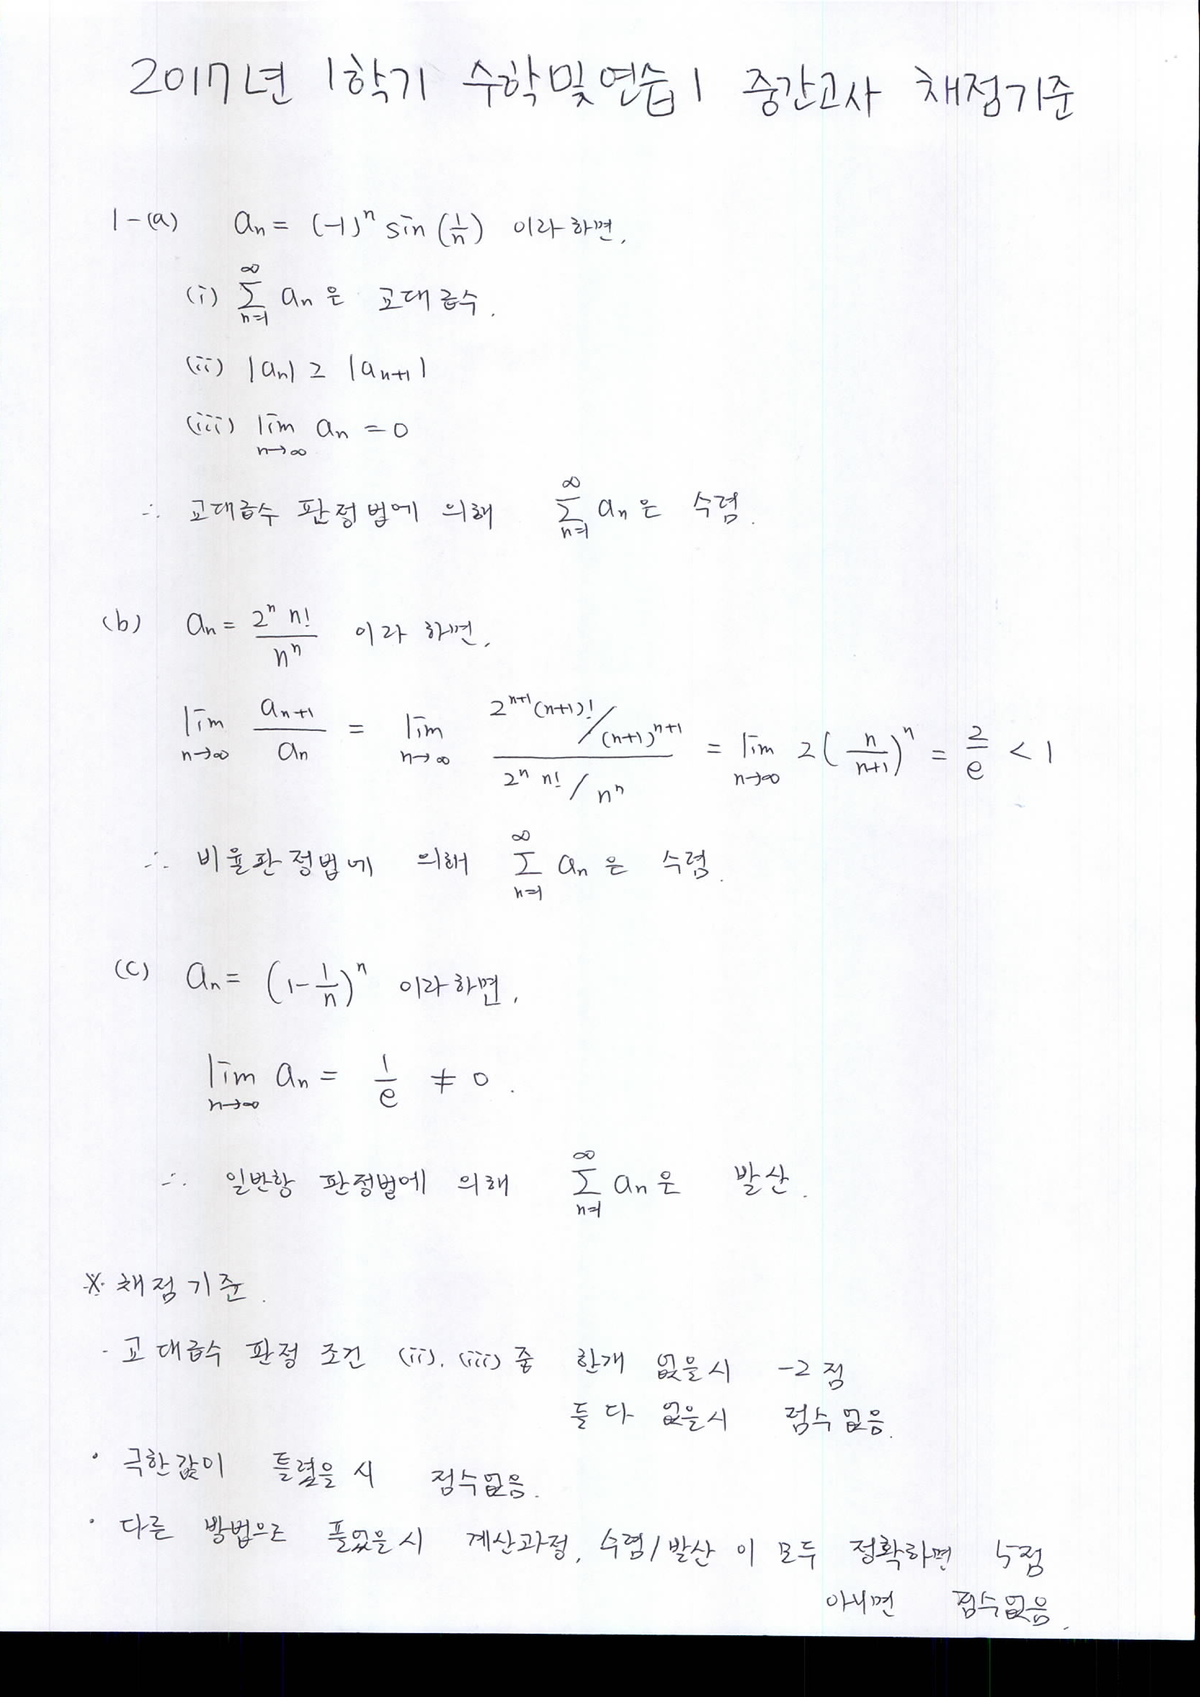 2017년 1학기 수학및연습1 중간고사 채점기준
1-(a) aₙ = (-1)ⁿ sin(1/n) 이라 하면,
(i) ∑_{n=1}^{∞} aₙ은 교대급수.
(ii) |aₙ| ≥ |aₙ₊₁|
(iii) lim_{n→∞} aₙ = 0
∴ 교대급수 판정법에 의해 ∑_{n=1}^{∞} aₙ은 수렴.
(b) aₙ = 2ⁿ n! / nⁿ 이라 하면,
lim_{n→∞} aₙ₊₁/aₙ = lim_{n→∞} (2ⁿ⁺¹(n+1)!/(n+1)ⁿ⁺¹)/(2ⁿ n!/nⁿ) = lim_{n→∞} 2(n/(n+1))ⁿ = 2/e < 1
∴ 비율판정법에 의해 ∑_{n=1}^{∞} aₙ은 수렴.
(c) aₙ = (1-1/n)ⁿ 이라하면,
lim_{n→∞} aₙ = 1/e ≠ 0.
∴ 일반항 판정법에 의해 ∑_{n=1}^{∞} aₙ은 발산.
※ 채점기준.
· 교대급수 판정 조건 (ii), (iii) 중 한개 없을시 -2점
둘 다 없을시 점수없음.
· 극한값이 틀렸을 시 점수없음.
· 다른 방법으로 풀었을시 계산과정, 수렴/발산 이 모두 정확하면 5점
아니면 점수없음.